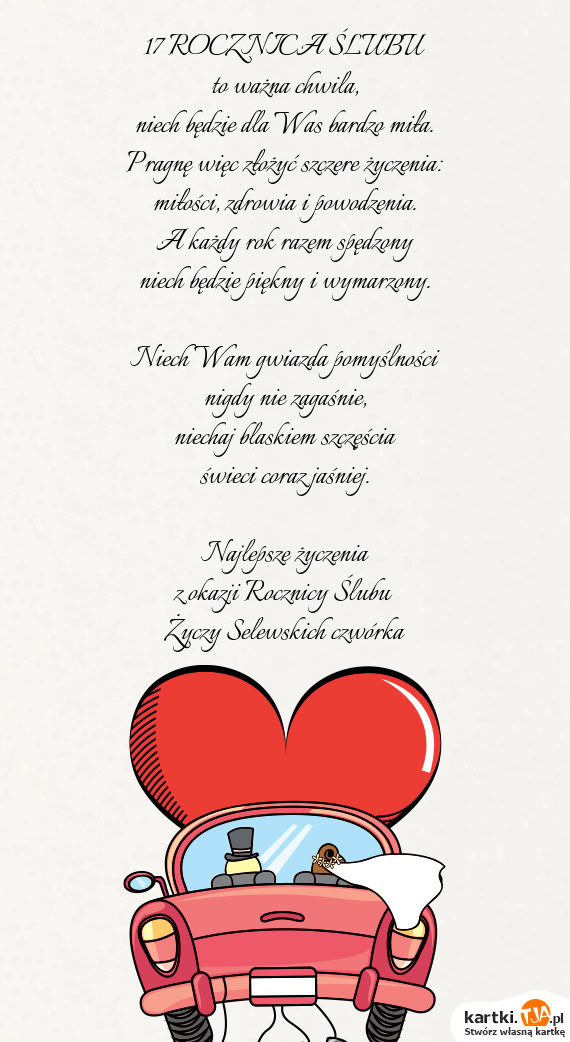 17 ROCZNICA ŚLUBU
to ważna chwila,
niech będzie dla Was bardzo miła.
Pragnę więc złożyć szczere życzenia:
miłości, zdrowia i powodzenia.
A każdy rok razem spędzony
niech będzie piękny i wymarzony.
Niech Wam gwiazda pomyślności
nigdy nie zagaśnie,
niechaj blaskiem szczęścia
świeci coraz jaśniej.
Najlepsze życzenia
z okazji Rocznicy Ślubu
Życzy Selewskich czwórka
kartki.TJA.pl
Stwórz własną kartkę